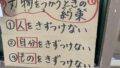 刃物をつかうときの
約束
①人をきずつけない
②自分をきずつけない
③ものをきずつけない